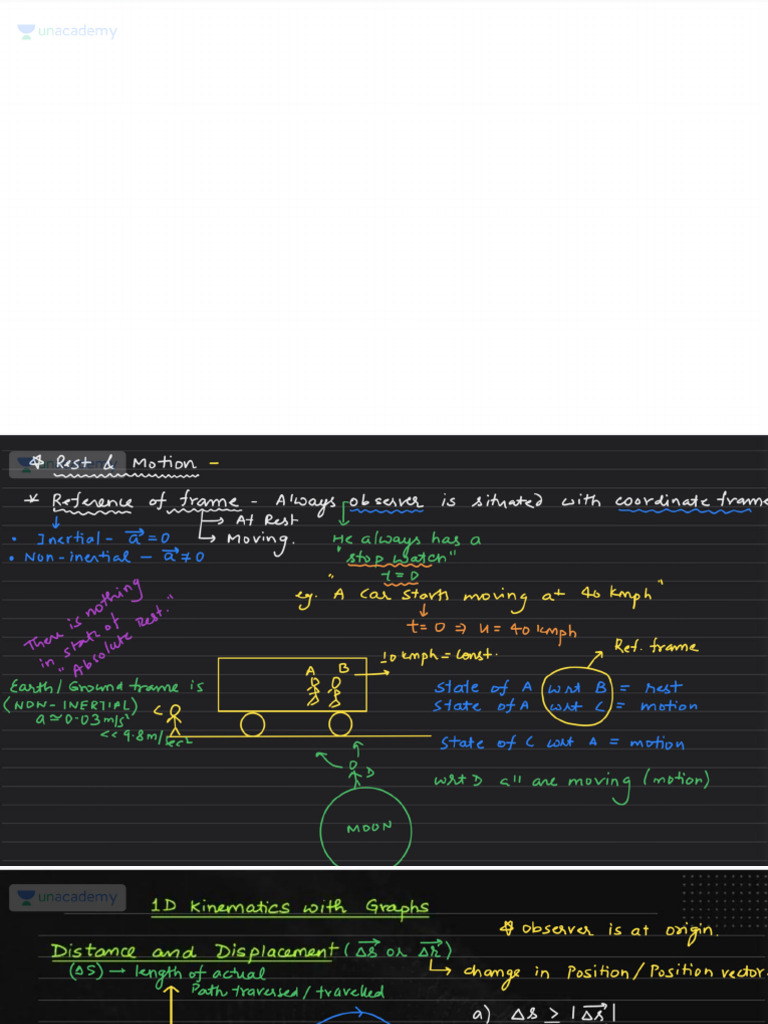 unacademy
☆ Rest & Motion -
* Reference of frame - Always observer is situated with coordinate frame
→ At Rest
• Inertial - a⃗ = 0
→ Moving.
He always has a
• Non-inertial - a⃗ ≠ 0
"stop watch"
t = 0
There is nothing
in state of
"Absolute Rest."
eg. "A car starts moving at 40 kmph"
t = 0 ⇒ u = 40 kmph
10 kmph = const.
Ref. frame
A B
Earth / Ground frame is
(NON-INERTIAL)
a ≃ 0.03 m/s²
<< 9.8 m/sec²
C
state of A wrt B = rest
state of A wrt C = motion
state of C wrt A = motion
D
wrt D all are moving (motion)
MOON
unacademy
1D Kinematics with Graphs
☆ observer is at origin.
Distance and Displacement (Δs⃗ or Δr⃗)
(Δs) → length of actual
Path traversed / travelled
→ change in Position / Position vector.
a) Δs ≥ |Δs⃗|